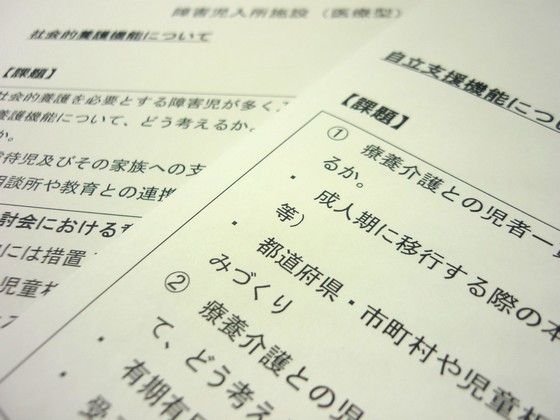 障害児入所施設（医療型）
社会的養護機能について
【課題】
社会的養護を必要とする障害児が多く
養護機能について、どう考えるか。
か。
待児及びその家族への支
相談所や教育との連携
討会における
には措置
児童相
自立支援機能につい
【課題】
① 療養介護との児者一貫
るか。
・ 成人期に移行する際の本
等）
・ 都道府県・市町村や児童相
みづくり
② 療養介護との児
て、どう考え
・ 有期有